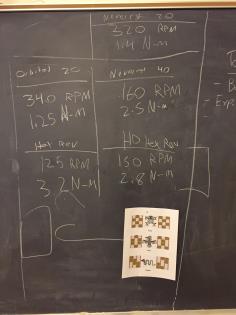 Neverest 20
320 RPM
1.4 N-m
Orbital 20
340 RPM
1.25 N-m
Neverest 40
160 RPM
2.5 N-m
Hex Rev
125 RPM
3.2 N-m
HD Hex Rev
150 RPM
2.8 N-m